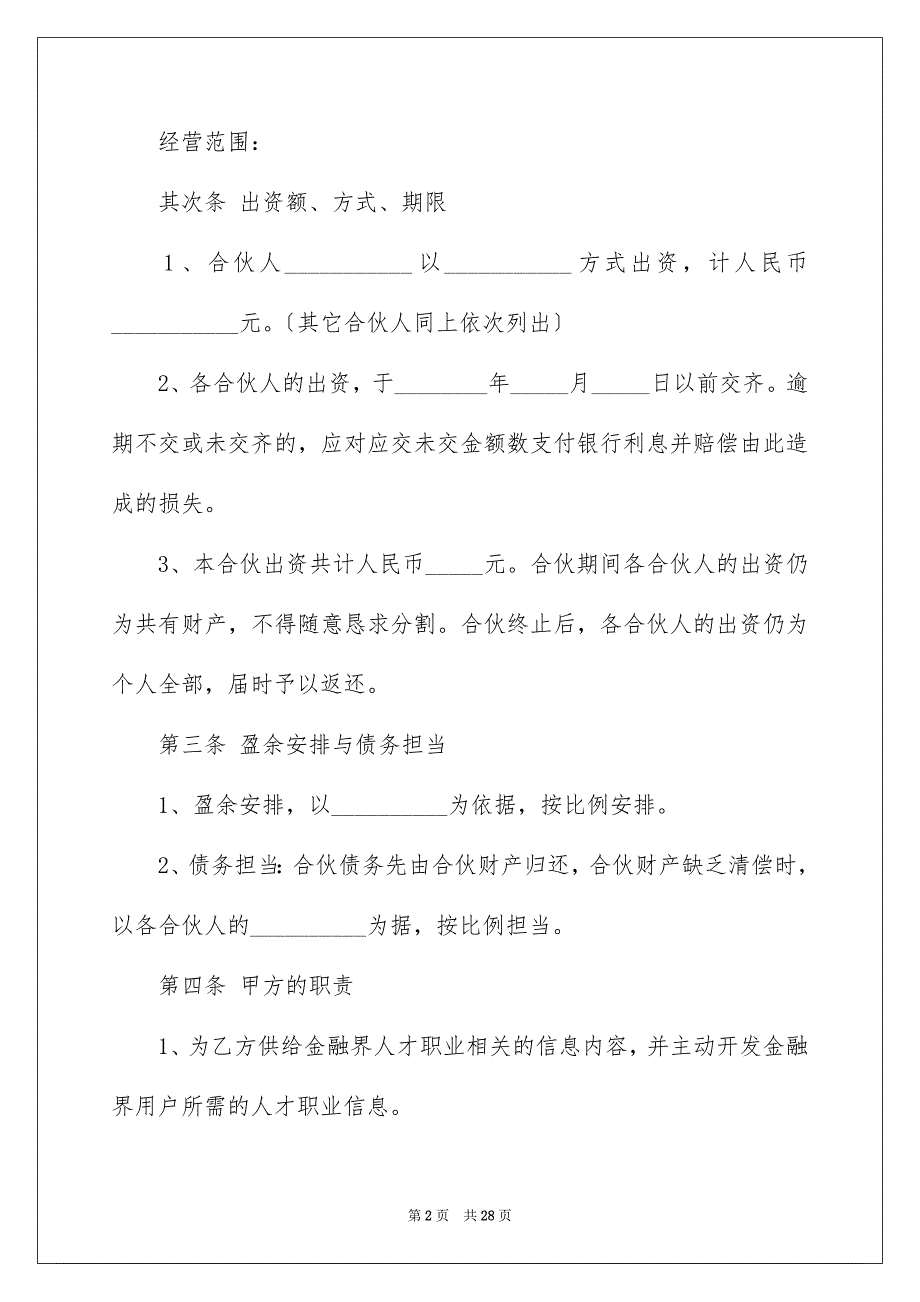 经营范围:
其次条 出资额、方式、期限
1、合伙人___________以___________方式出资，计人民币
___________元。〔其它合伙人同上依次列出〕
2、各合伙人的出资，于________年_____月_____日以前交齐。逾
期不交或未交齐的，应对应交未交金额数支付银行利息并赔偿由此造
成的损失。
3、本合伙出资共计人民币_____元。合伙期间各合伙人的出资仍
为共有财产，不得随意恳求分割。合伙终止后，各合伙人的出资仍为
个人全部，届时予以返还。
第三条 盈余安排与债务担当
1、盈余安排，以__________为依据，按比例安排。
2、债务担当:合伙债务先由合伙财产归还，合伙财产缺乏清偿时，
以各合伙人的__________为据，按比例担当。
第四条 甲方的职责
1、为乙方供给金融界人才职业相关的信息内容，并主动开发金融
界用户所需的人才职业信息。
第 2 页 共 28 页